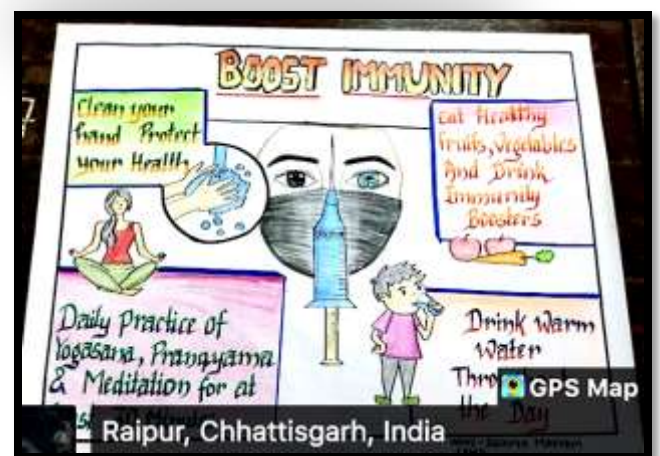 BOOST IMMUNITY
Clean your
hand Protect
your Health
Eat Healthy
fruits, Vegetables
And Drink
Immunity
Boosters
Daily Practice of
Yogasana, Pranayama
& Meditation for at
Drink Warm
Water
the Day
GPS Map
Raipur, Chhattisgarh, India